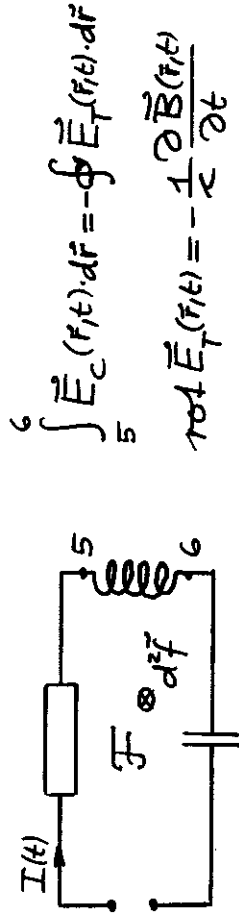 I(t)
5
F
⊗
d²f⃗
6
∫₅⁶ E⃗_C(r⃗,t)·dr⃗ = -∮ E⃗_T(r⃗,t)·dr⃗
rot E⃗_T(r⃗,t) = -1/c ∂B⃗(r⃗,t)/∂t